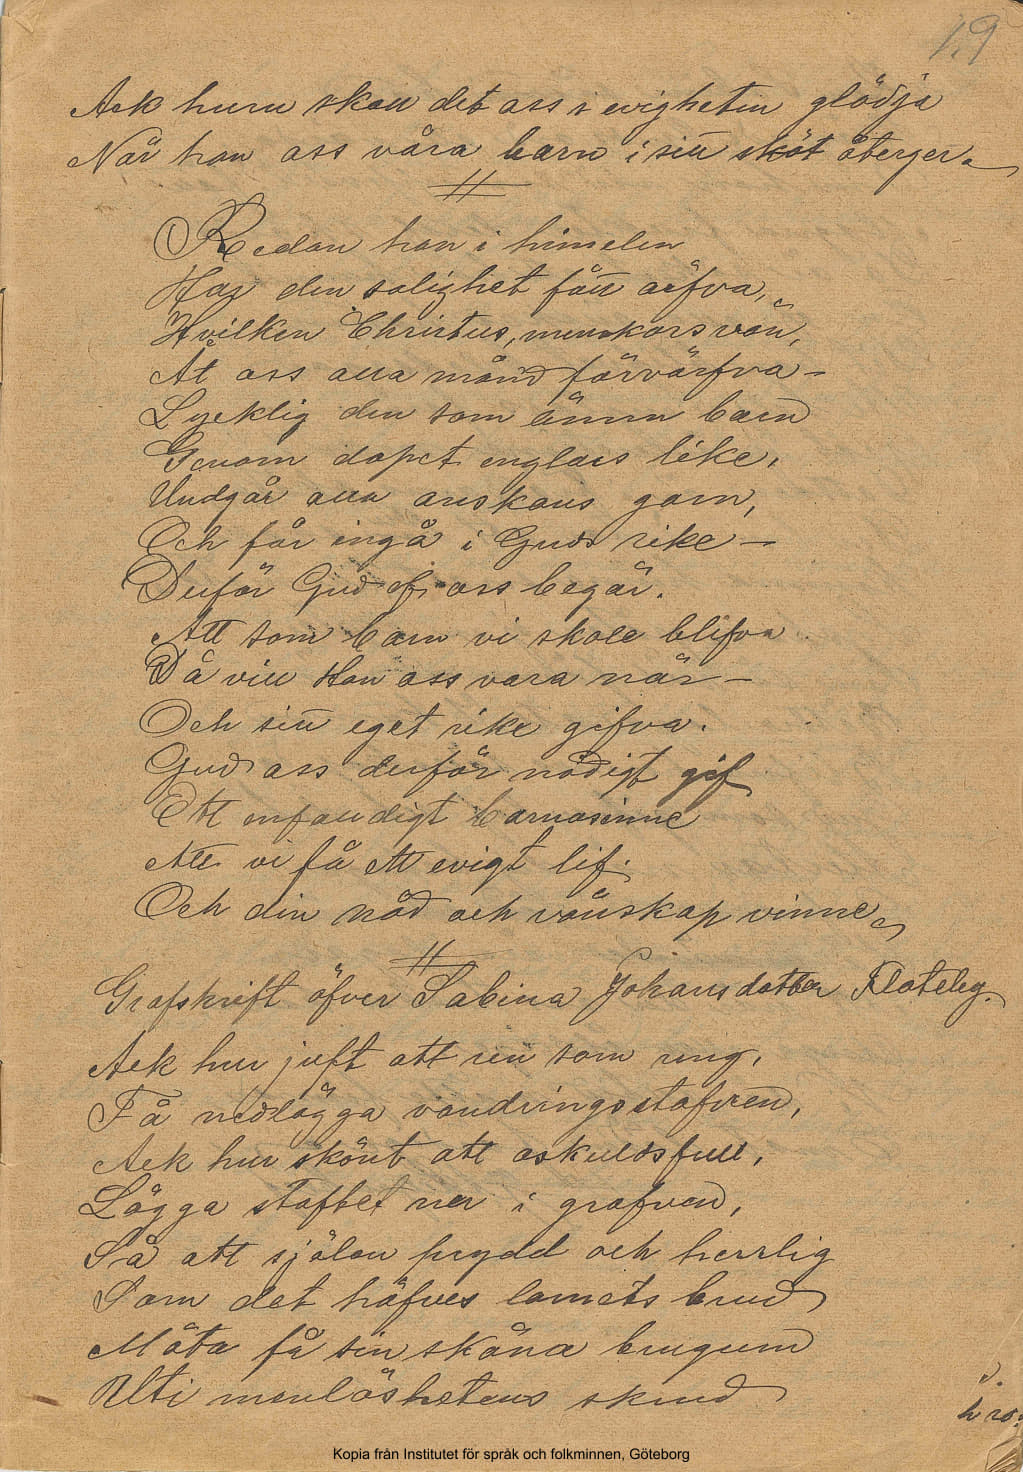 19
Ack huru skall det oss i evigheten glädja
När han oss våra barn i sitt sköt återger.
Redan han i himelen
Har den salighet fått ärfva,
Hvilken Christus, menskors vän,
Åt oss alla månd förvärfva –
Lycklig den som ännu barn
Genom dopet englars like,
Undgår alla onskans garn,
Och får ingå i Guds rike –
Derför Gud af oss begär.
Att som barn vi skole blifva
Då vill Han oss vara när –
Och sitt eget rike gifva.
Gud oss derför nådigt gif
Ett enfaldigt barnasinne
Att vi få ett evigt lif.
Och din nåd och vänskap vinne
Grafskrift öfver Sabina Johansdotter Floteby.
Ack hur ljuft att re'n som ung,
Få nedlägga vandringsstafven,
Ack hur skönt att oskuldsfull,
Lägga stoftet ner i grafven,
Så att själen prydd och herrlig
Som det höfves lamets brud
Möta få sin sköna brugum
Uti menlöshetens skrud
Kopia från Institutet för språk och folkminnen, Göteborg